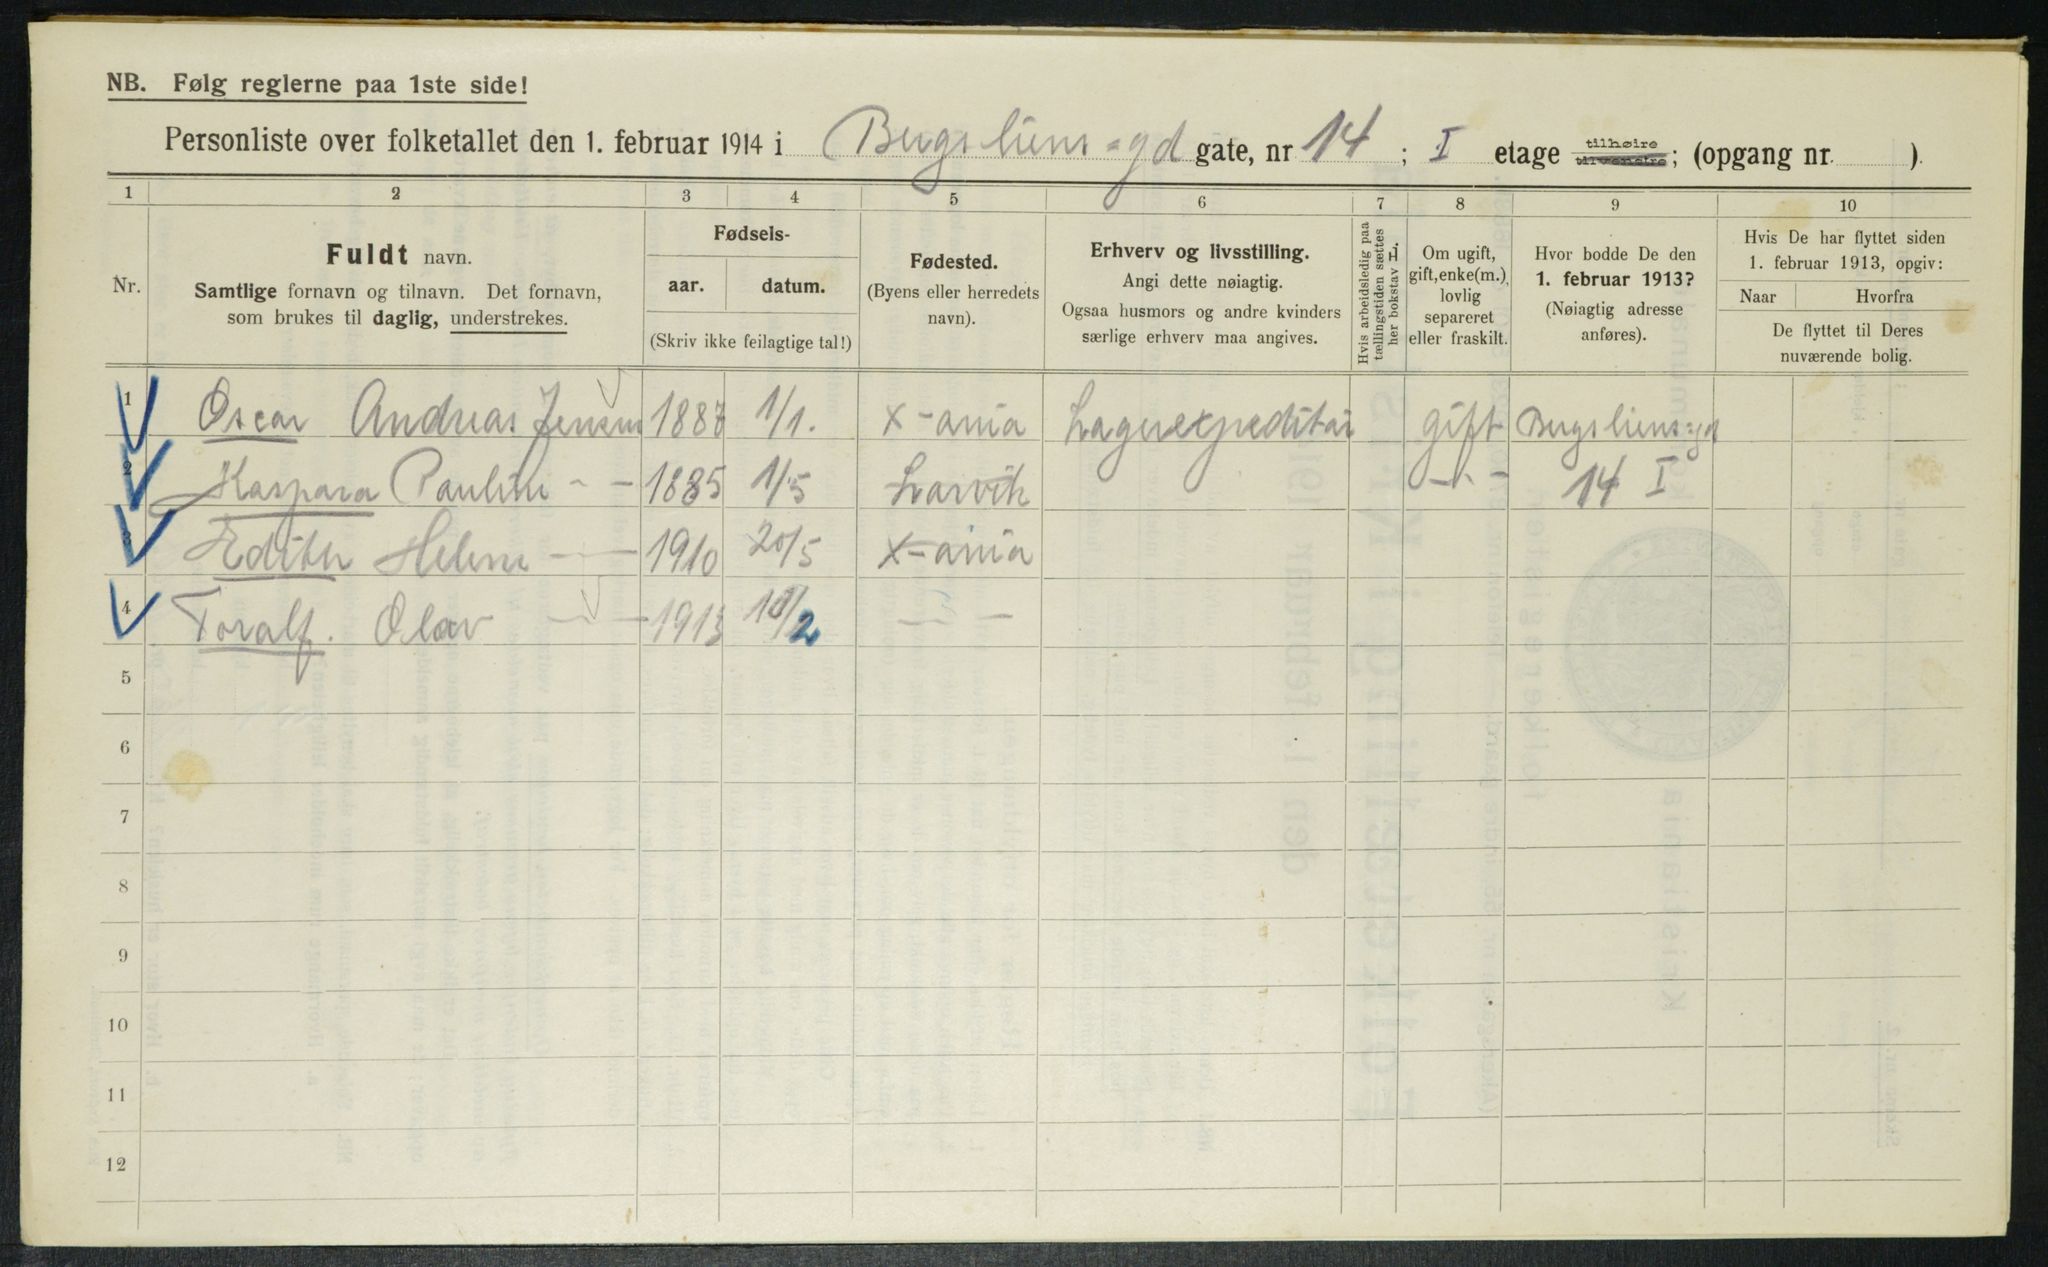 NB. Følg reglerne paa 1ste side!
Personliste over folketallet den 1. februar 1914 i Bergsliens=gd gate, nr 14; I etage tilhøire tilvenstre; (opgang nr. ).
1 2 3 4 5 6 7 8 9 10
Nr.
Fuldt navn.
Samtlige fornavn og tilnavn. Det fornavn,
som brukes til daglig, understrekes.
Fødsels-
aar. datum.
(Skriv ikke feilagtige tal!)
Fødested.
(Byens eller herredets
navn).
Erhverv og livsstilling.
Angi dette nøiagtig.
Ogsaa husmors og andre kvinders
særlige erhverv maa angives.
Hvis arbeidsledig paa
tællingstiden sættes
her bokstav L.
Om ugift,
gift, enke(m.),
lovlig
separeret
eller fraskilt.
Hvor bodde De den
1. februar 1913?
(Nøiagtig adresse
anføres).
Hvis De har flyttet siden
1. februar 1913, opgiv:
Naar Hvorfra
De flyttet til Deres
nuværende bolig.
1 Oscar Andreas Jensen 1887 1/1. X-ania Lagerexpeditør gift Bergsliens=gd
2 Kaspara Pauline - - 1885 1/5 Larvik -"- 14 I
3 Edith Helene - 1910 20/5 X-ania
4 Toralf. Olav - 1913 /2 -"-
5
6
7
8
9
10
11
12